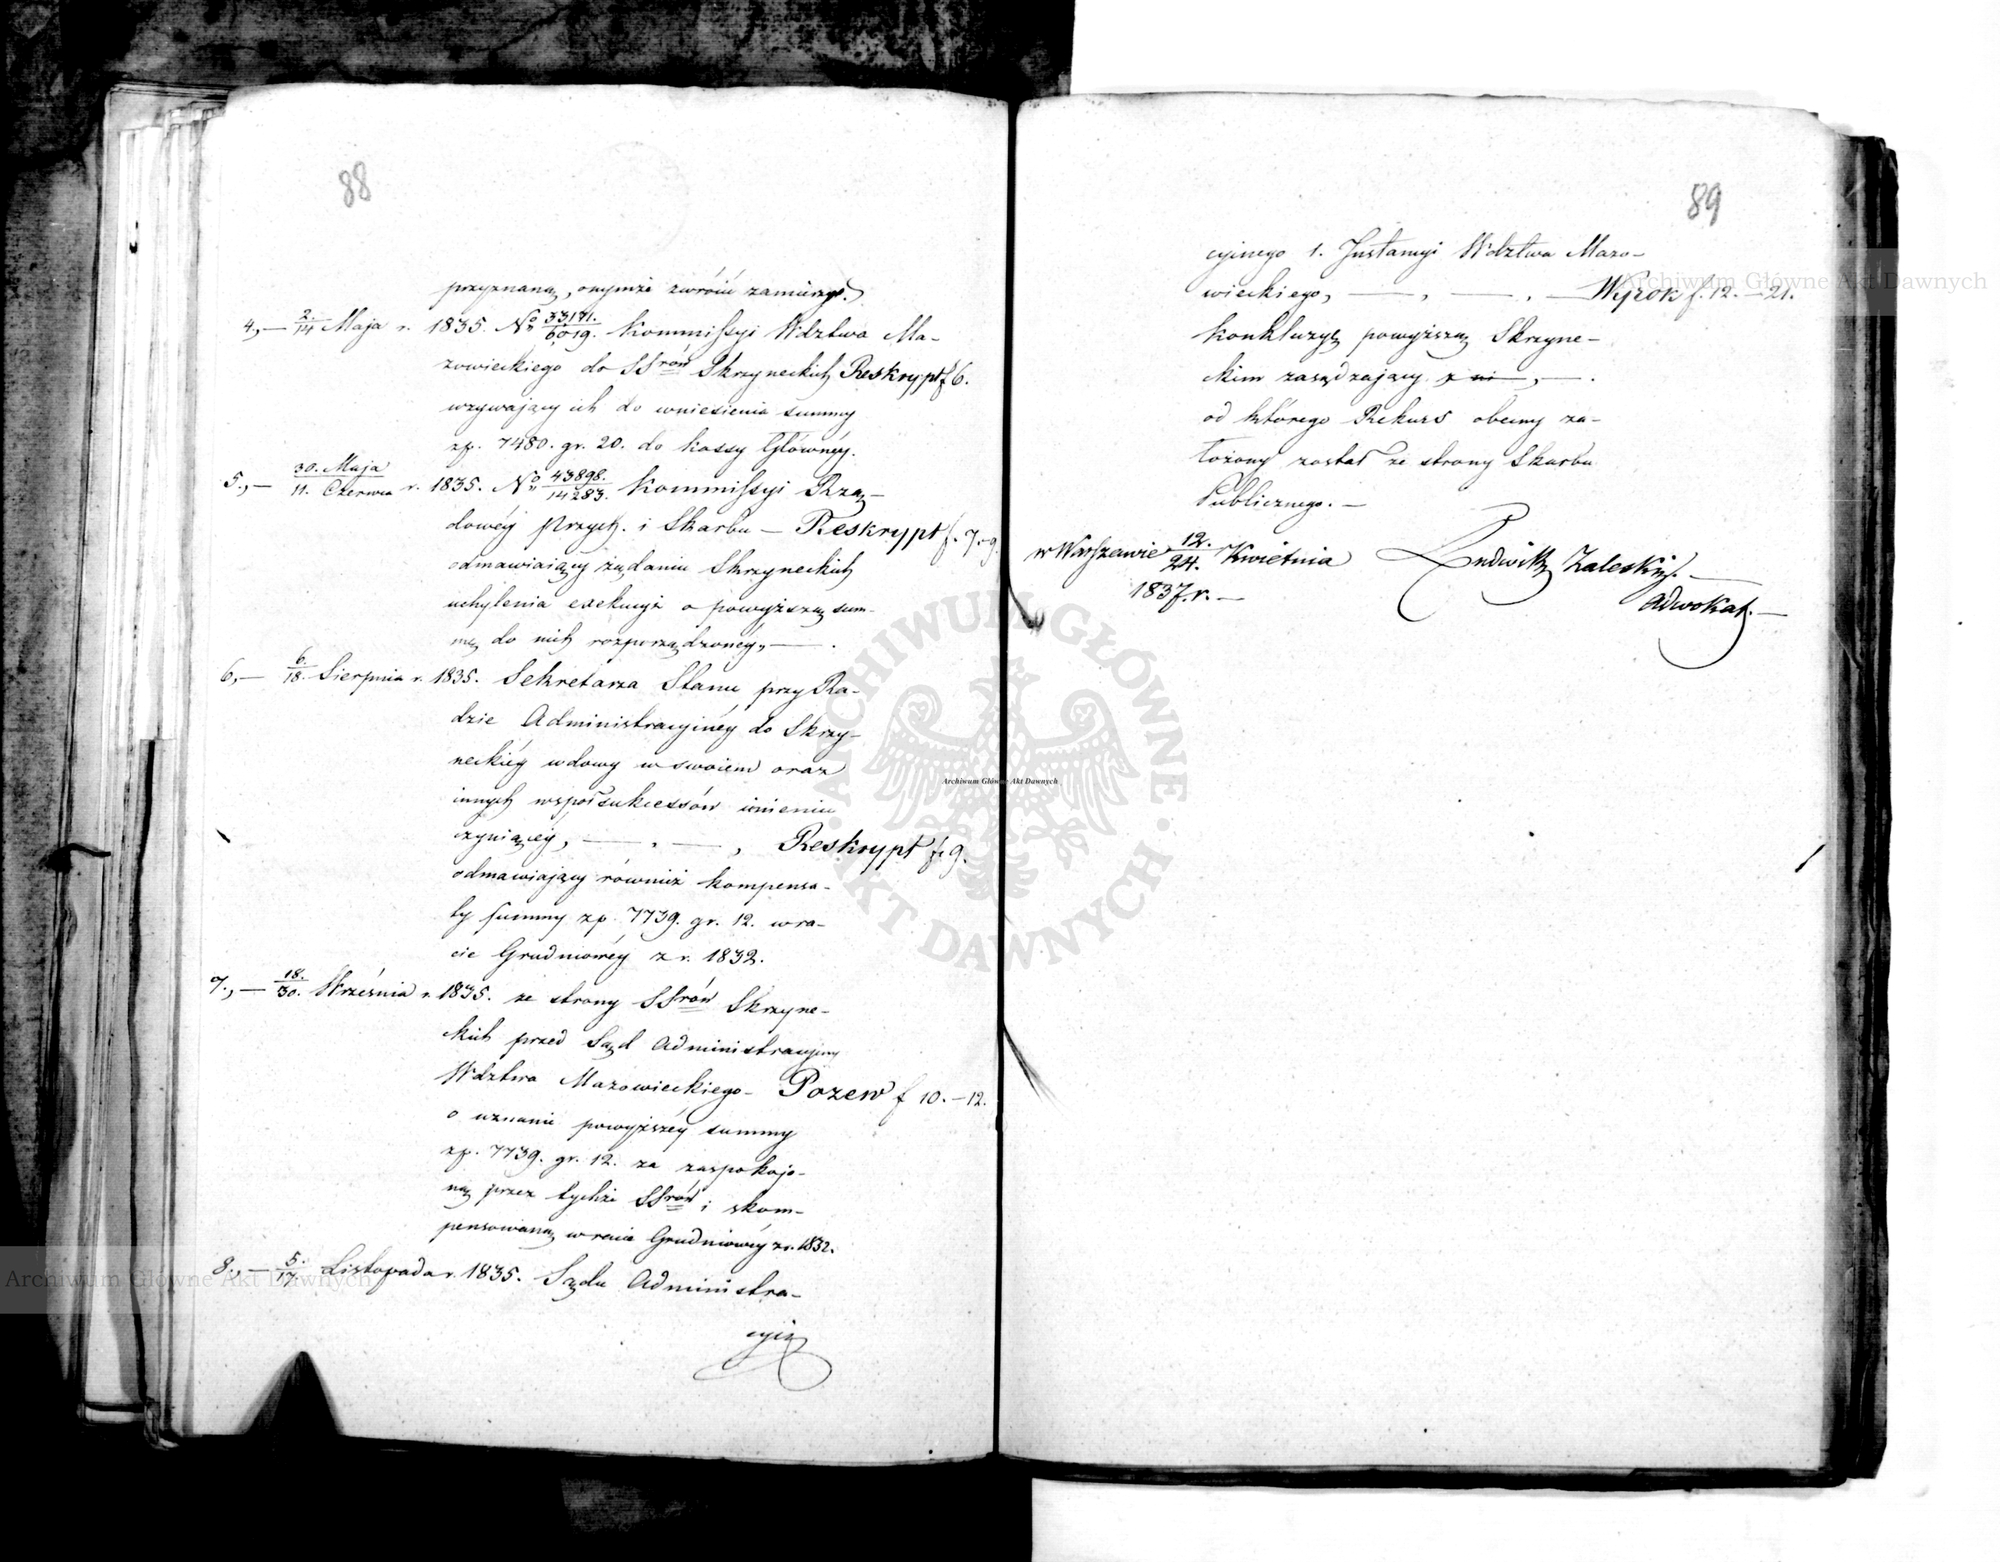 88
przyznaną, onymże zwrócić zamierza.
4,— 2./14 Maja r. 1835. No 33171./6019. Kommissyi Wdztwa Ma-
zowieckiego do SSrów Skrzyneckich Reskrypt f 6.
wzywający ich do wniesienia summy
zp. 7480. gr. 20. do kassy Główney.
5,— 30. Maja/11. Czerwca r. 1835. No 43898./14283. Kommissyi Rzą-
dowéy Przych. i Skarbu — Reskrypt f. 7.-9
odmawiaiący żądaniu Skrzyneckich
uchylenia exekucyi o powyższą sum-
mę do nich rozporządzonéy, — .
6,— 6./18. Sierpnia r. 1835. Sekretarza Stanu przy Ra-
dzie Administracyinéy do Skrzy-
neckiéy wdowy w swoiem oraz
innych wspołsukcessów imieniu
czyniącéy, — . — , Reskrypt f. 9.
odmawiający również kompensa-
ty summy zp. 7739. gr. 12. w ra-
cie Grudniowéy z r. 1832.
7,— 18./30. Września r. 1835. ze strony SSrów Skrzyne-
ckich przed Sąd Administracyiny
Wdztwa Mazowieckiego — Pozew f 10.—12.
o uznanie powyższéy summy
zp. 7739. gr. 12. za zaspokojo-
ną przez tychże SSrów i skom-
pensowaną w racie Grudniowéy z r. 1832.
8,— 5./17. Listopada r. 1835. Sądu Administra-
cyin
89
cyinego 1. Instancyi Wdztwa Mazo-
wieckiego, — , — , — Wyrok f. 12.—21.
konkluzyę powyższą Skrzyne-
ckim zasądzający z ni, — .
od którego Rekurs obecny za-
łożony został ze strony Skarbu
Publicznego. —
w Warszawie 12./24. Kwietnia
1837. r. —
Ludwik Zaleski. —
Adwokat. —
Archiwum Główne Akt Dawnych
Archiwum Główne Akt Dawnych
Archiwum Główne Akt Dawnych
ARCHIWUM GŁÓWNE · AKT DAWNYCH ·